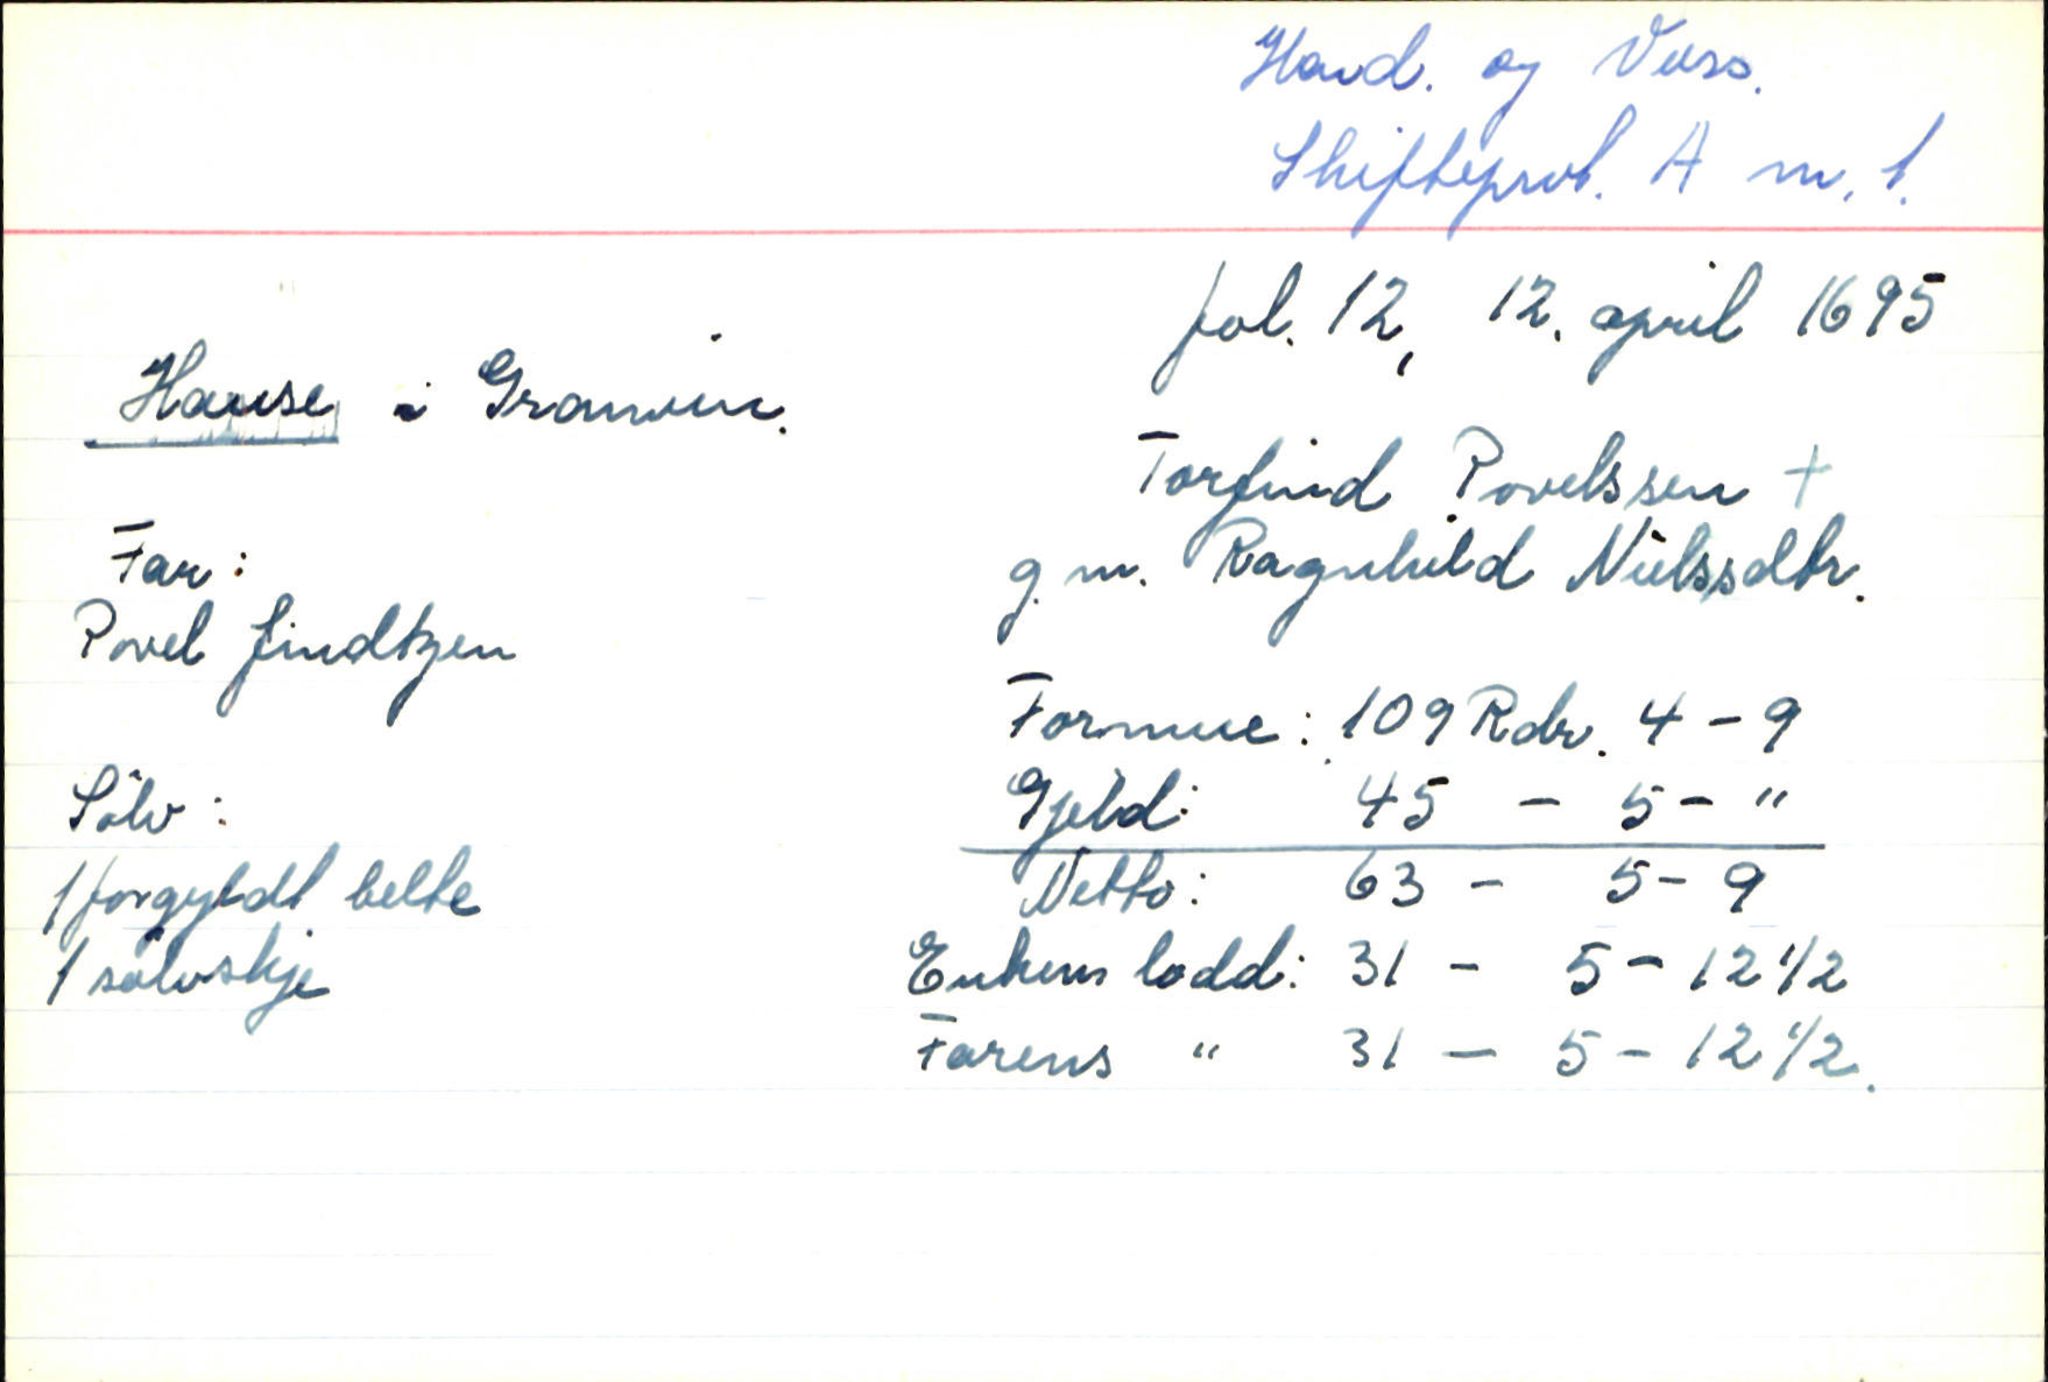 Hard. og Voss.
Skifteprot. A nr. 1.
fol. 12, 12. april 1695
Hause i Granvin.
Torfind Povelssen +
g. m. Ragnhild Nielssdtr.
Far:
Povel findtzen
Formue: 109 Rdr. 4 - 9
Gjeld: 45 - 5 - "
Netto: 63 - 5 - 9
Enkens lodd: 31 - 5 - 12 1/2
Farens " 31 - 5 - 12 1/2.
Sølv:
1 forgyldt belte
1 sølvskje